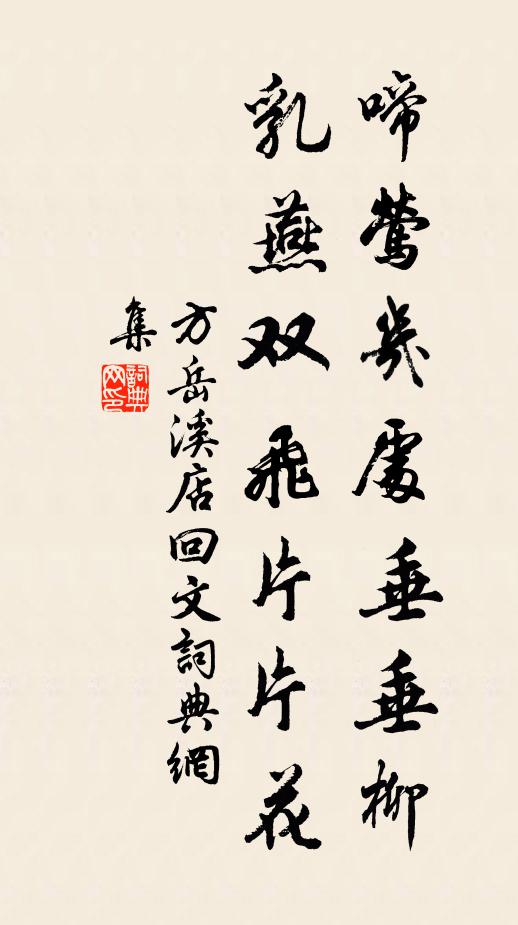 啼鶯幾處垂垂柳
乳燕双飛片片花
方岳溪店回文詞典網
集
詞典
网印